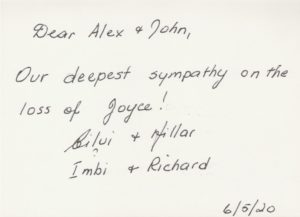 Dear Alex & John,
Our deepest sympathy on the
loss of Joyce!
Silvi & Hillar
Imbi & Richard
6/5/20